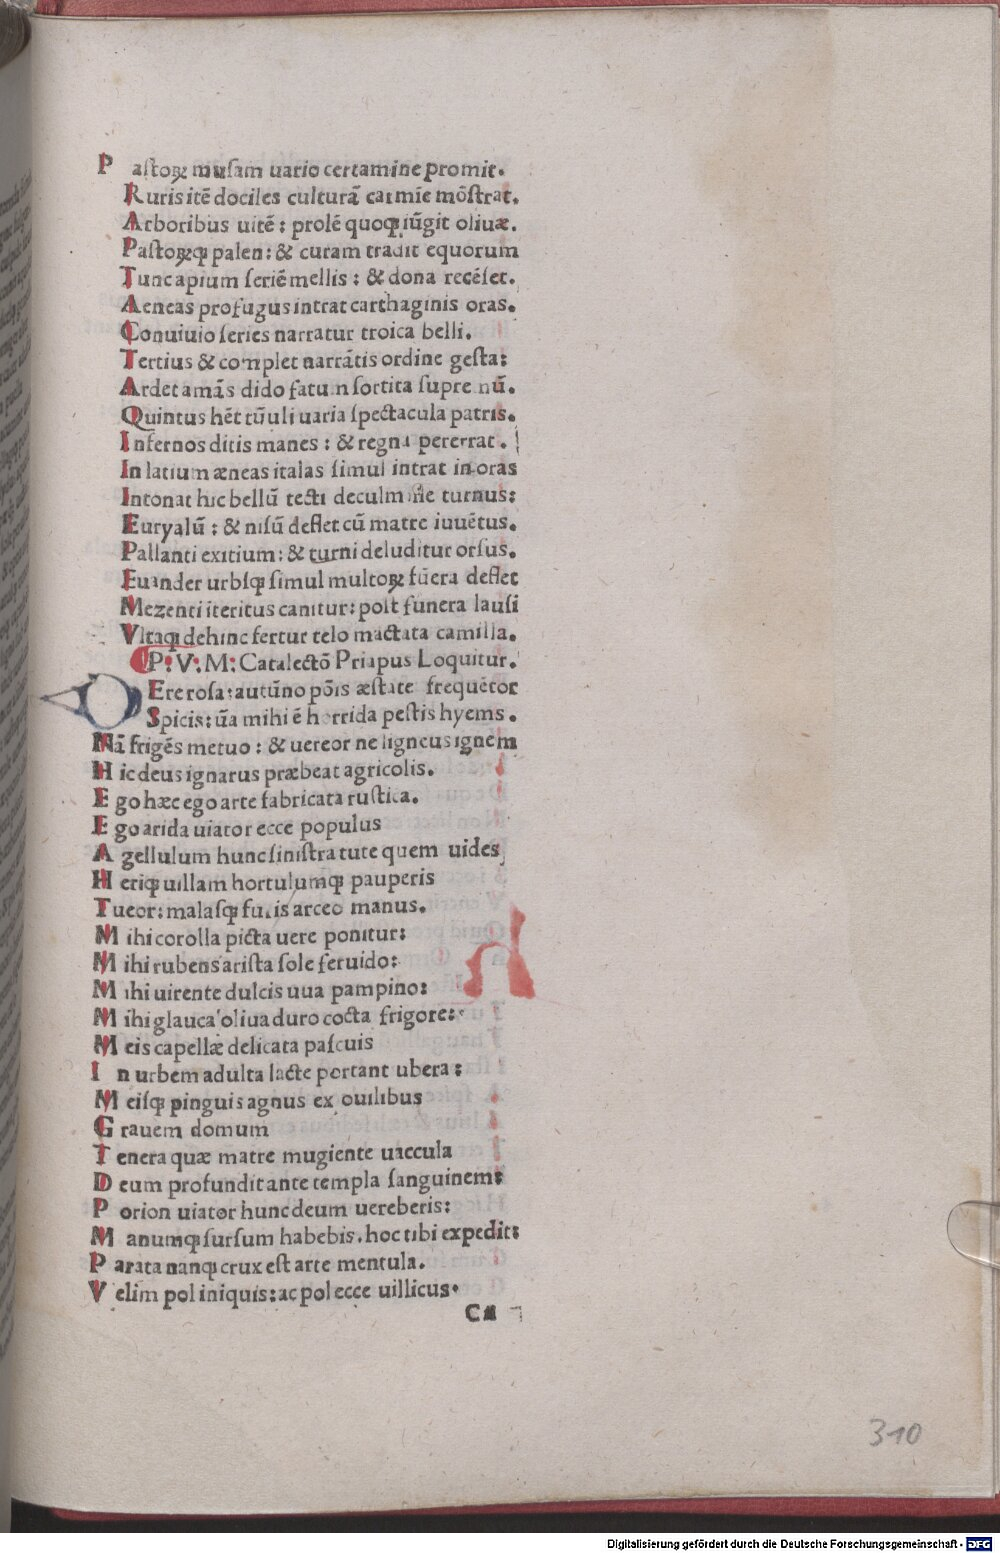 Pastoꝝ musam uario certamine promit.
Ruris itē dociles culturā carmie mōstrat.
Arboribus uitē: prolē quoqꝫ iūgit oliuæ.
Pastoꝝqꝫ palen: & curam tradit equorum
Tunc apium seriē mellis: & dona recēset.
Aeneas profugus intrat carthaginis oras.
Conuiuio series narratur troica belli.
Tertius & complet narrātis ordine gesta:
Ardet amās dido fatum sortita supremū.
Quintus hēt tūuli uaria spectacula patris.
Infernos ditis manes: & regna pererrat.
In latium æneas italas simul intrat in oras
Intonat hic bellū tecti de culmine turnus:
Euryalū: & nisū deflet cū matre iuuētus.
Pallanti exitium: & turni deluditur orsus.
Euander urbsqꝫ simul multoꝝ fūera deflet
Mezenti iteritus canitur: post funera lausi
Vltaqꝫ dehinc fertur telo mactata camilla.
P: V: M: Catalectō Priapus Loquitur.
VEre rosa: autūno pōis æstate frequētor
Spicis: ūa mihi ē horrida pestis hyems.
Nā frigēs metuo: & uereor ne ligneus ignem
Hic deus ignarus præbeat agricolis.
Ego hæc ego arte fabricata rustica.
Ego arida uiator ecce populus
Agellulum hunc sinistra tute quem uides
Heriqꝫ uillam hortulumqꝫ pauperis
Tueor: malasqꝫ furis arceo manus.
Mihi corolla picta uere ponitur:
Mihi rubens arista sole feruido:
Mihi uirente dulcis uua pampino:
Mihi glauca oliua duro cocta frigore:
Meis capellæ delicata pascuis
In urbem adulta lacte portant ubera:
Meisqꝫ pinguis agnus ex ouilibus
Grauem domum
Tenera quæ matre mugiente uaccula
Deum profundit ante templa sanguinem:
Porion uiator hunc deum uereberis:
Manumqꝫ sursum habebis. hoc tibi expedit:
Parata nanqꝫ crux est arte mentula.
Velim pol iniquis: ac pol ecce uillicus.
310
Digitalisierung gefördert durch die Deutsche Forschungsgemeinschaft - DFG